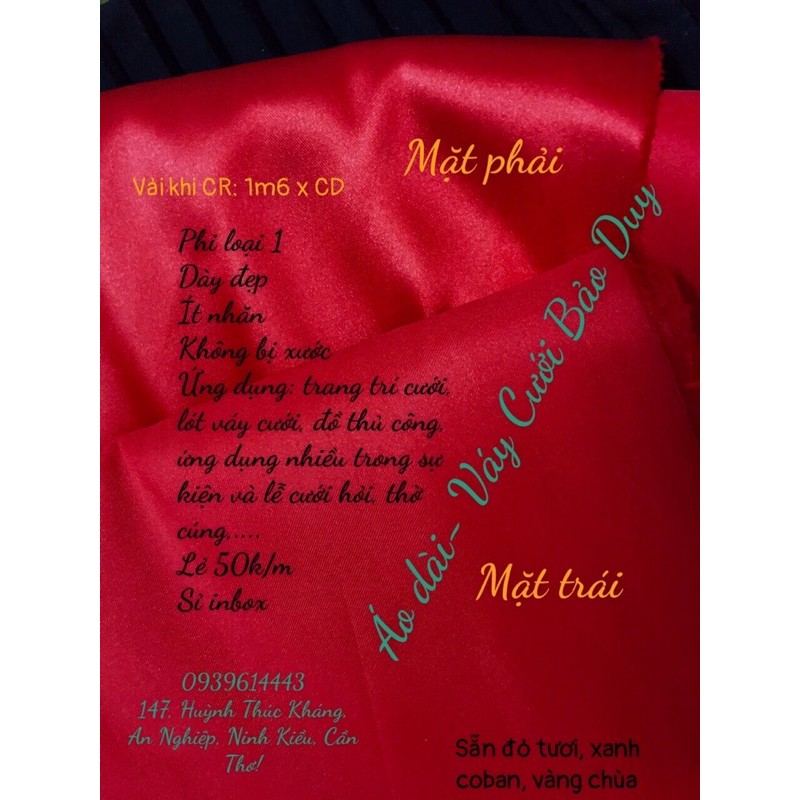 Mặt phải
Vải khi CR: 1m6 x CD
Phi loại 1
Dày đẹp
Ít nhăn
Không bị xước
Ứng dụng: trang trí cưới,
lót váy cưới, đồ thủ công,
ứng dụng nhiều trong sự
kiện và lễ cưới hỏi, thờ
cúng,....
Lẻ 50k/m
Sỉ inbox
Áo dài- Váy Cưới Bảo Duy
Mặt trái
0939614443
147, Huỳnh Thúc Kháng,
An Nghiệp, Ninh Kiều, Cần
Thơ!
Sẵn đỏ tươi, xanh
coban, vàng chùa